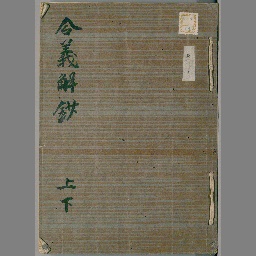 令義解鈔
上下